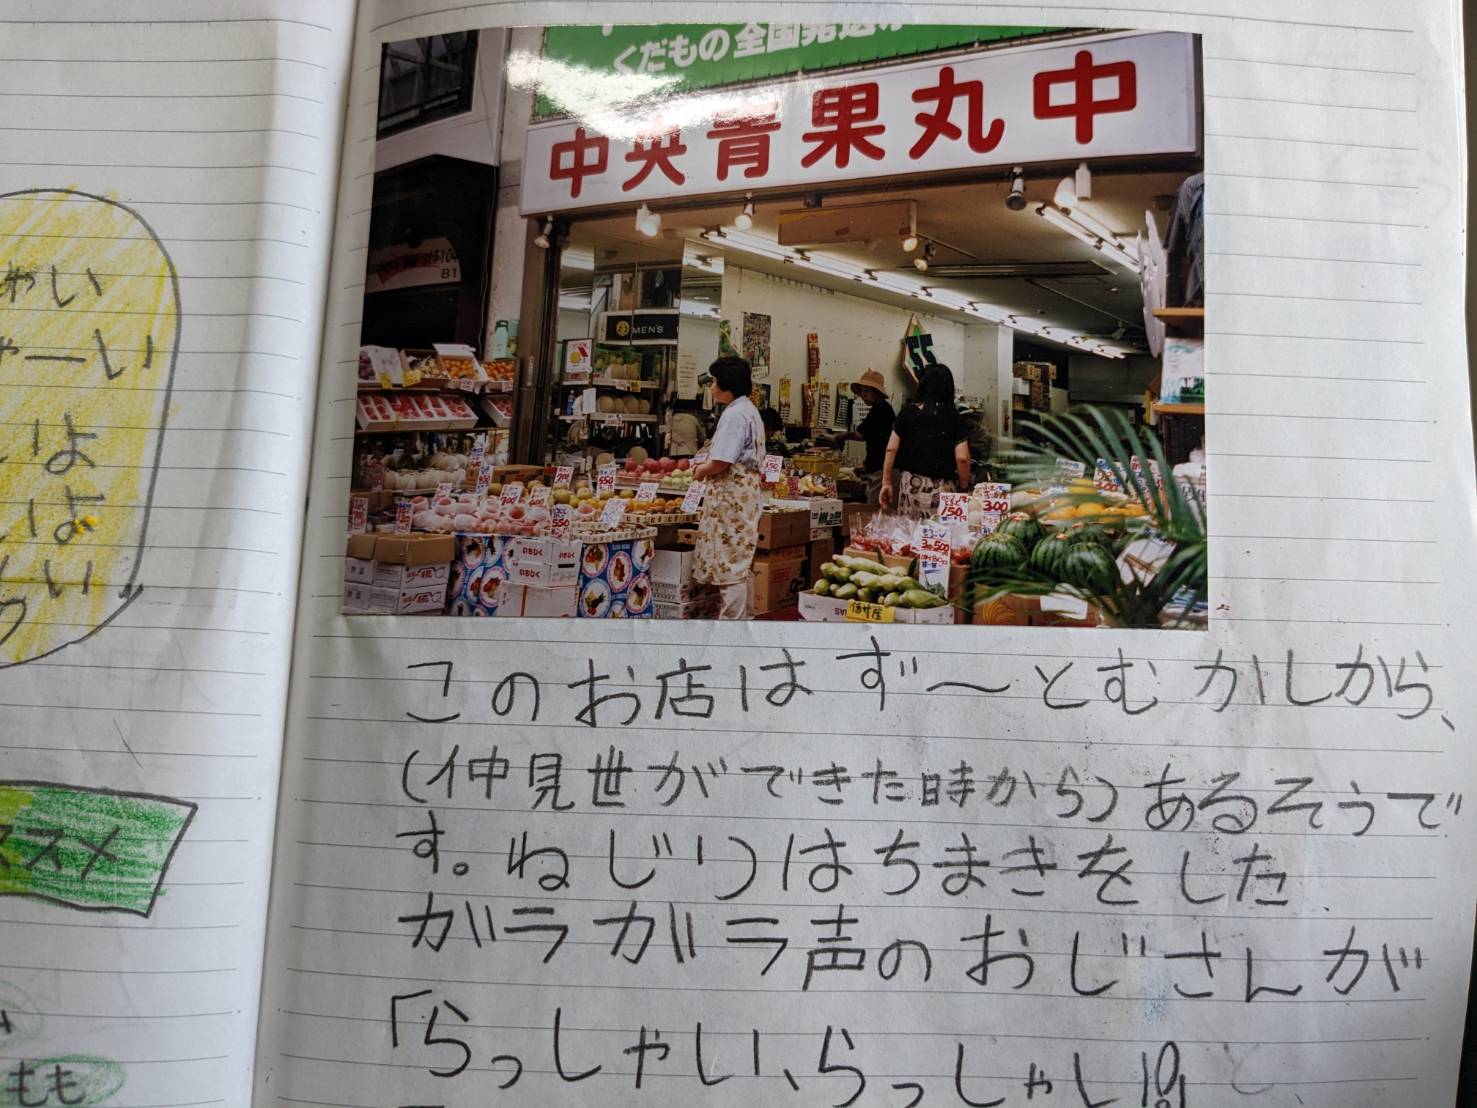 くだもの全国発送
中央青果丸中
B1
MEN'S
いちじく
いちじく
550
150
300
3コ500
信州産
ゃい
ゃーい
いよ
はよ
い
ススメ
もも
このお店はず〜とむかしから、
(仲見世ができた時から)あるそうで
す。ねじりはちまきをした
ガラガラ声のおじさんが
「らっしゃい、らっしゃい!!」と